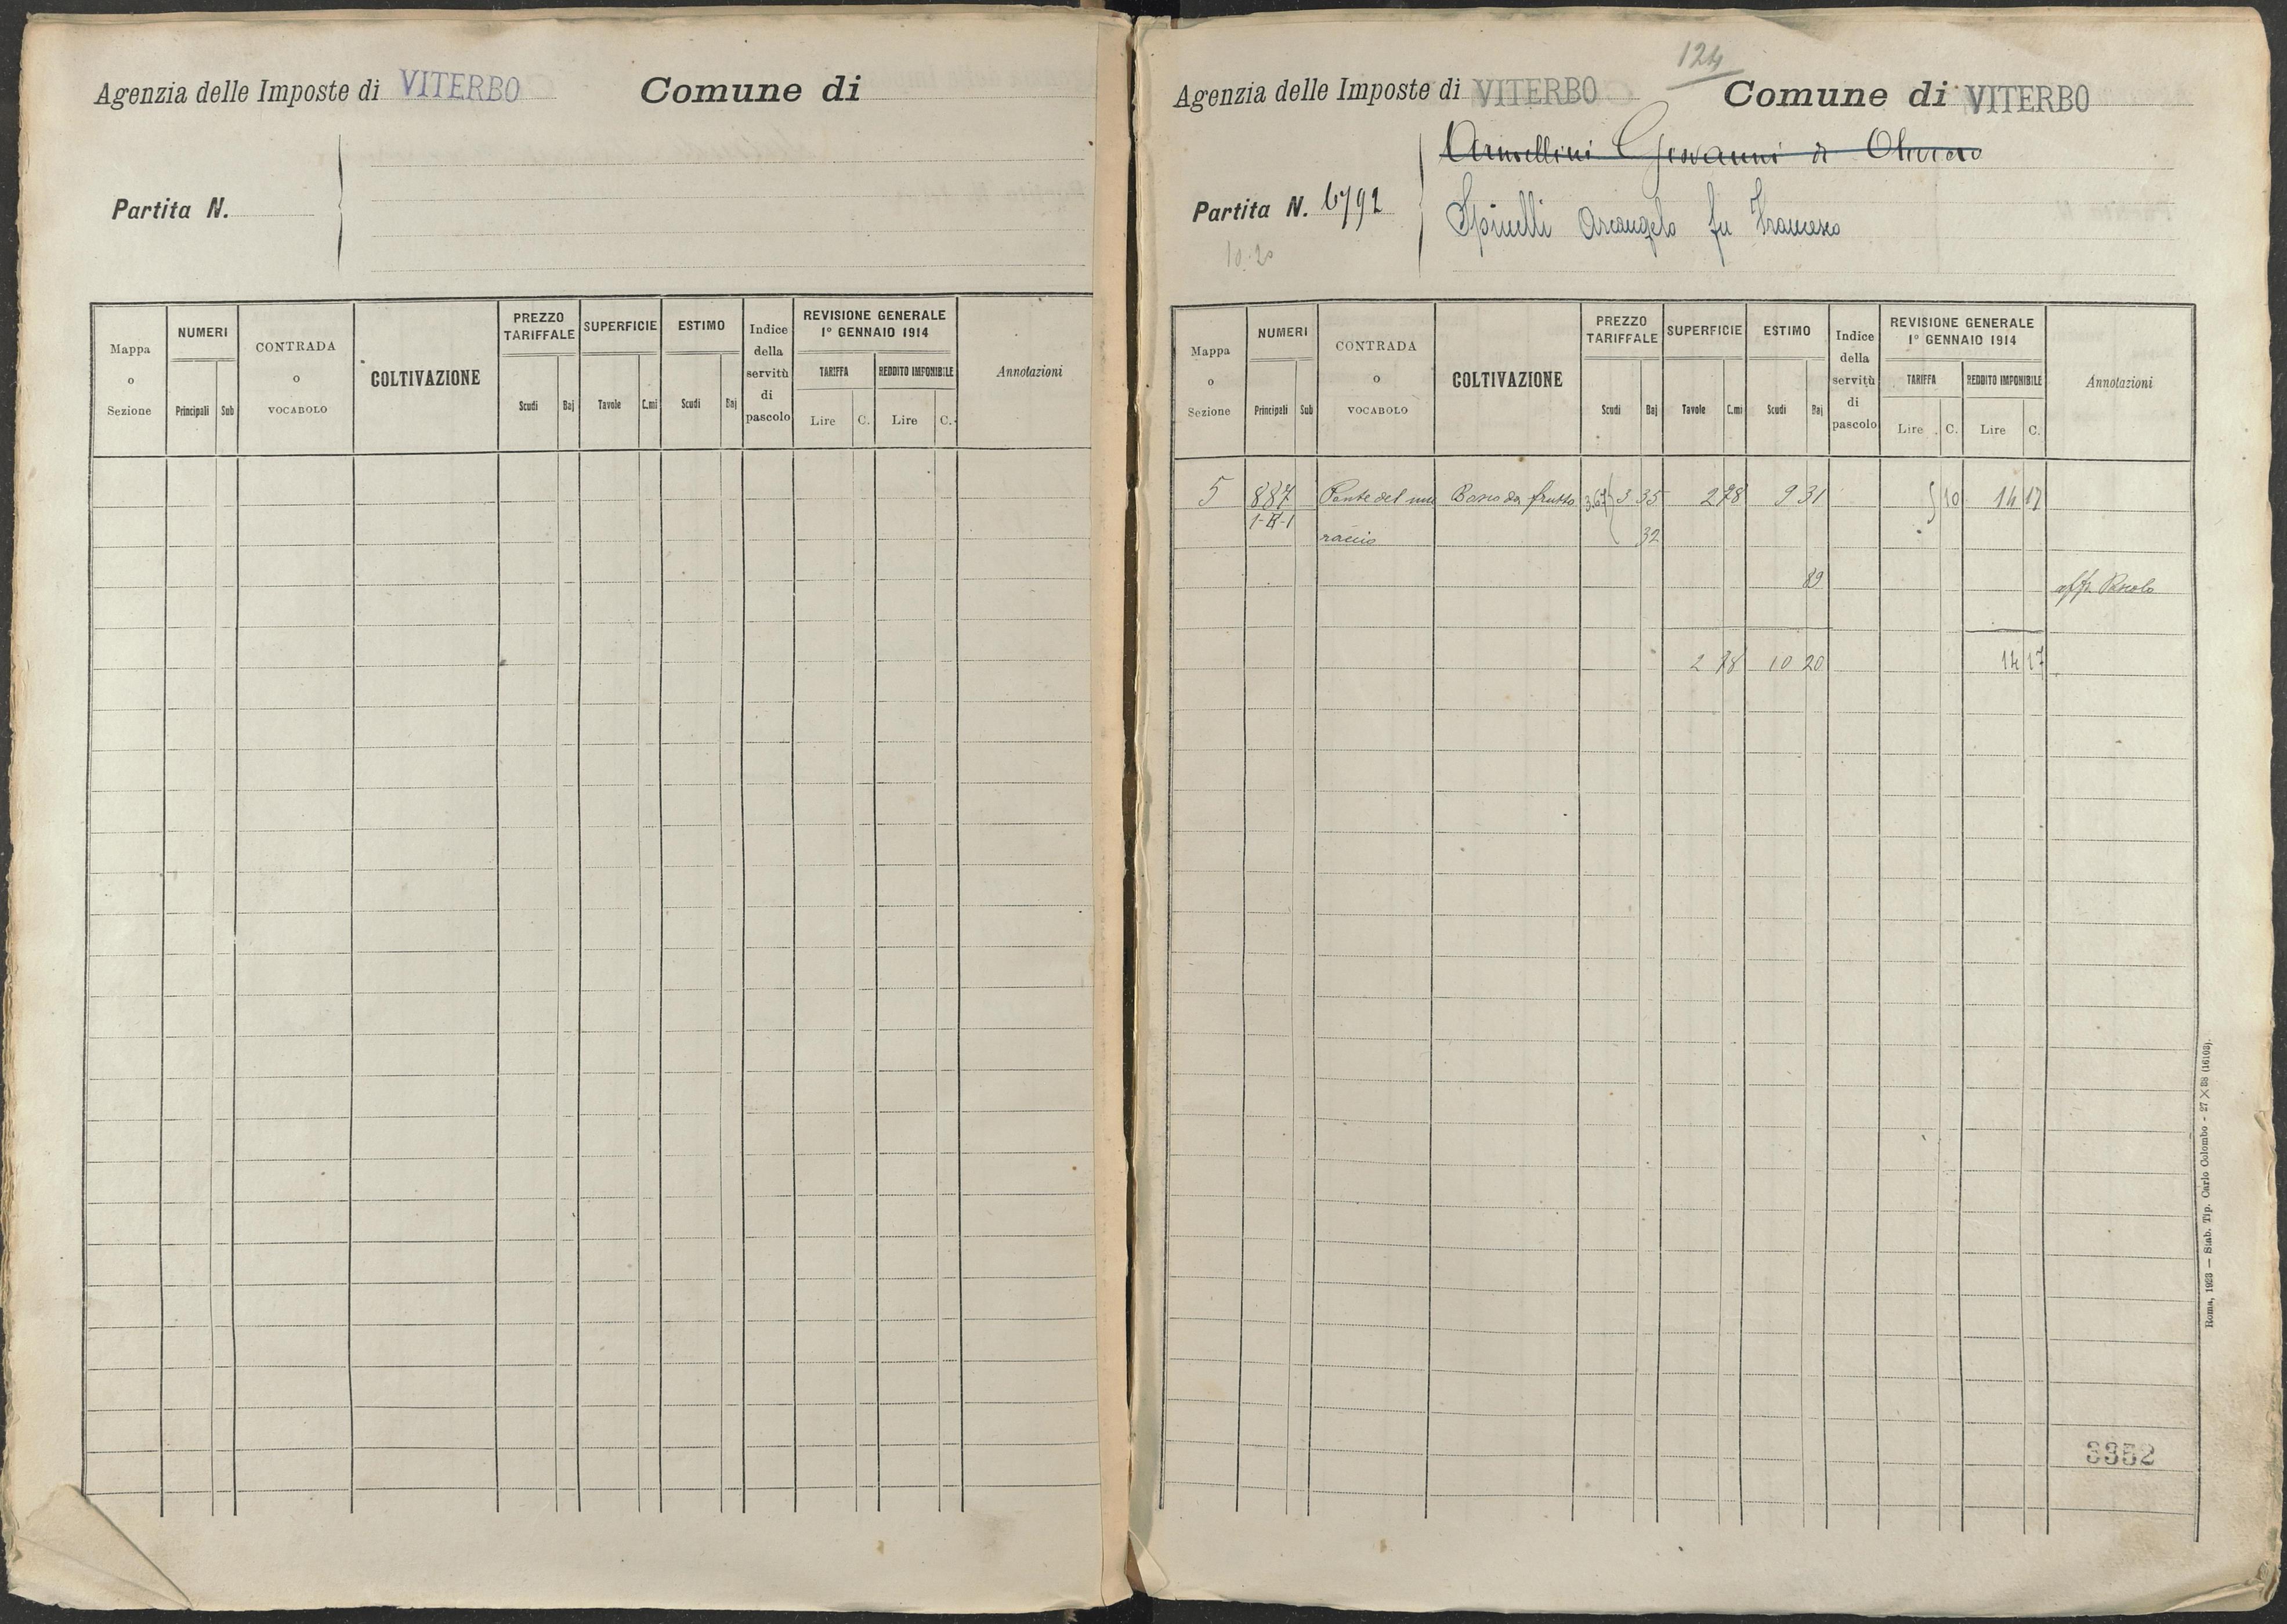 Agenzia delle Imposte di VITERBO Comune di
Partita N.
Mappa o Sezione
NUMERI
Principali Sub
CONTRADA o VOCABOLO
COLTIVAZIONE
PREZZO TARIFFALE
Scudi Baj
SUPERFICIE
Tavole C.mi
ESTIMO
Scudi Baj
Indice della servitù di pascolo
REVISIONE GENERALE
1° GENNAIO 1914
TARIFFA REDDITO IMPONIBILE
Lire C. Lire C.
Annotazioni
124
Agenzia delle Imposte di VITERBO Comune di VITERBO
Giovanni di
Partita N. 6792
Spinelli Arcangelo fu Francesco
10.20
Mappa o Sezione
NUMERI
Principali Sub
CONTRADA o VOCABOLO
COLTIVAZIONE
PREZZO TARIFFALE
Scudi Baj
SUPERFICIE
Tavole C.mi
ESTIMO
Scudi Baj
Indice della servitù di pascolo
REVISIONE GENERALE
1° GENNAIO 1914
TARIFFA REDDITO IMPONIBILE
Lire C. Lire C.
Annotazioni
5 887 Ponte del da frutto 3.67 3 35 2 78 9 31 5 10 14 17
32
89
2 78 10 20 14 17
Roma, 1923 — Stab. Tip. Carlo Colombo - 27 X 38 (16103).
3352